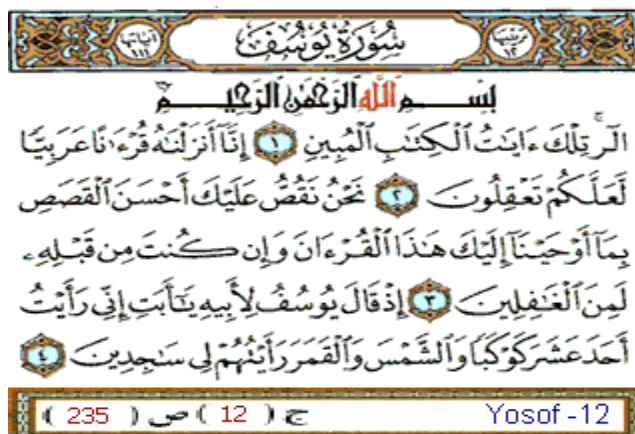 ترتيبها ١٢ سُورَةُ يُوسُفَ آياتها ١١١
بِسْمِ ٱللَّهِ ٱلرَّحْمَٰنِ ٱلرَّحِيمِ
الٓر ۚ تِلْكَ ءَايَٰتُ ٱلْكِتَٰبِ ٱلْمُبِينِ ١ إِنَّآ أَنزَلْنَٰهُ قُرْءَٰنًا عَرَبِيًّا
لَّعَلَّكُمْ تَعْقِلُونَ ٢ نَحْنُ نَقُصُّ عَلَيْكَ أَحْسَنَ ٱلْقَصَصِ
بِمَآ أَوْحَيْنَآ إِلَيْكَ هَٰذَا ٱلْقُرْءَانَ وَإِن كُنتَ مِن قَبْلِهِۦ
لَمِنَ ٱلْغَٰفِلِينَ ٣ إِذْ قَالَ يُوسُفُ لِأَبِيهِ يَٰٓأَبَتِ إِنِّى رَأَيْتُ
أَحَدَ عَشَرَ كَوْكَبًا وَٱلشَّمْسَ وَٱلْقَمَرَ رَأَيْتُهُمْ لِى سَٰجِدِينَ ٤
Yosof -12 ج ( 12 ) ص ( 235 )